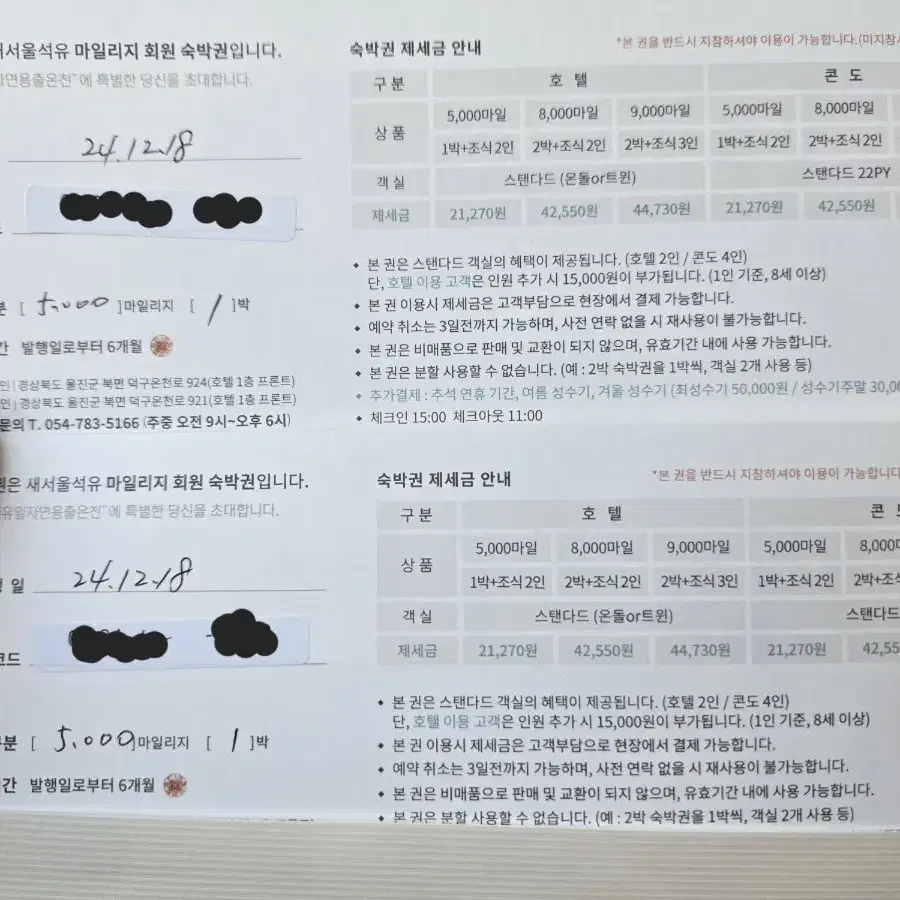 새서울석유 마일리지 회원 숙박권입니다.
자연용출온천"에 특별한 당신을 초대합니다.
24.12.18
분 [ 5,000 ]마일리지 [ 1 ]박
간 발행일로부터 6개월
인 | 경상북도 울진군 북면 덕구온천로 924(호텔 1층 프론트)
인 | 경상북도 울진군 북면 덕구온천로 921(호텔 1층 프론트)
문의 T. 054-783-5166 (주중 오전 9시~오후 6시)
숙박권 제세금 안내
*본 권을 반드시 지참하셔야 이용이 가능합니다.(미지참시
구 분 호 텔 콘 도
상 품 5,000마일 8,000마일 9,000마일 5,000마일 8,000마일
1박+조식2인 2박+조식 2인 2박+조식 3인 1박+조식 2인 2박+조식 2인
객 실 스탠다드 (온돌or트윈) 스탠다드 22PY
제세금 21,270원 42,550원 44,730원 21,270원 42,550원
◆ 본 권은 스탠다드 객실의 혜택이 제공됩니다. (호텔 2인 / 콘도 4인)
단, 호텔 이용 고객은 인원 추가 시 15,000원이 부가됩니다. (1인 기준, 8세 이상)
◆ 본 권 이용시 제세금은 고객부담으로 현장에서 결제 가능합니다.
◆ 예약 취소는 3일전까지 가능하며, 사전 연락 없을 시 재사용이 불가능합니다.
◆ 본 권은 비매품으로 판매 및 교환이 되지 않으며, 유효기간 내에 사용 가능합니다.
◆ 본 권은 분할 사용할 수 없습니다. (예 : 2박 숙박권을 1박씩, 객실 2개 사용 등)
◆ 추가결제 : 추석 연휴 기간, 여름 성수기, 겨울 성수기 (최성수기 50,000원 / 성수기주말 30,00
◆ 체크인 15:00 체크아웃 11:00
권은 새서울석유 마일리지 회원 숙박권입니다.
유일자연용출온천"에 특별한 당신을 초대합니다.
행 일 24.12.18
코드
구분 [ 5,000 ]마일리지 [ 1 ]박
기간 발행일로부터 6개월
숙박권 제세금 안내
*본 권을 반드시 지참하셔야 이용이 가능합니다.
구 분 호 텔 콘 도
상 품 5,000마일 8,000마일 9,000마일 5,000마일 8,000마
1박+조식2인 2박+조식 2인 2박+조식 3인 1박+조식 2인 2박+조식
객 실 스탠다드 (온돌or트윈) 스탠다드
제세금 21,270원 42,550원 44,730원 21,270원 42,55
◆ 본 권은 스탠다드 객실의 혜택이 제공됩니다. (호텔 2인 / 콘도 4인)
단, 호텔 이용 고객은 인원 추가 시 15,000원이 부가됩니다. (1인 기준, 8세 이상)
◆ 본 권 이용시 제세금은 고객부담으로 현장에서 결제 가능합니다.
◆ 예약 취소는 3일전까지 가능하며, 사전 연락 없을 시 재사용이 불가능합니다.
◆ 본 권은 비매품으로 판매 및 교환이 되지 않으며, 유효기간 내에 사용 가능합니다.
◆ 본 권은 분할 사용할 수 없습니다. (예 : 2박 숙박권을 1박씩, 객실 2개 사용 등)